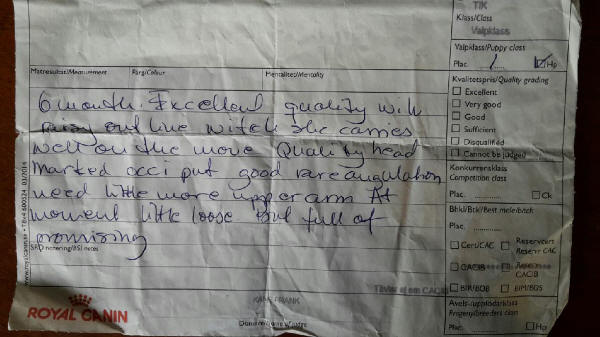 TIK
Klass/Class
Valpklass
Valpklass/Puppy class
Plac. 1 ☑ Hp
Matresultat/Measurement Färg/Colour Mentalitet/Mentality
Kvalitetspris/Quality grading
Excellent
Very good
Good
Sufficient
Disqualified
Cannot be judged
6 month. Excellent quality with
out line witch she carries
well on the move Quality head
Marked occi put good rare angulation
need little more upper arm At
moment little loose but full of
promising
Konkurrensklass
Competition class
Plac. Ck
Bhkl/Btkl/Best male/bitch
Plac.
Cert/CAC Reservcert
Reserv CAC
CACIB Reserve
CACIB
BIR/BOB BIM/BOS
Avels-/uppfödarklass
Progeny/breeders class
Plac. Hp
www.royalcanin.se • Tävl 600324 03/2014
ROYAL CANIN
FRANK
Domare/Name of judge